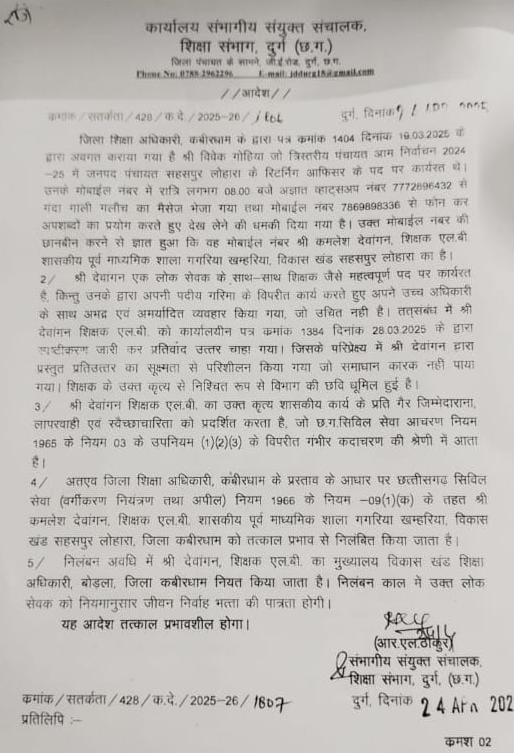 कार्यालय संभागीय संयुक्त संचालक,
शिक्षा संभाग, दुर्ग (छ.ग.)
जिला पंचायत के सामने, जी.ई.रोड, दुर्ग, छ.ग.
Phone No: 0788-2962296 E-mail: jddurg18@gmail.com
//आदेश//
कमांक/सतर्कता/428/क.दे./2025-26/ दुर्ग, दिनांक
जिला शिक्षा अधिकारी, कबीरधाम के द्वारा पत्र कमांक 1404 दिनांक 19.03.2025 के
द्वारा अवगत कराया गया है श्री विवेक गोहिया जो त्रिस्तरीय पंचायत आम निर्वाचन 2024
-25 में जनपद पंचायत सहसपुर लोहारा के रिटर्निंग आफिसर के पद पर कार्यरत थे।
उनके मोबाईल नंबर में रात्रि लगभग 08.00 बजे अज्ञात व्हाट्सअप नंबर 7772896432 से
गंदा गाली गलौच का मैसेज भेजा गया तथा मोबाईल नंबर 7869898336 से फोन कर
अपशब्दों का प्रयोग करते हुए देख लेने की धमकी दिया गया है। उक्त मोबाईल नंबर की
छानबीन करने से ज्ञात हुआ कि वह मोबाईल नंबर श्री कमलेश देवांगन, शिक्षक एल.बी.
शासकीय पूर्व माध्यमिक शाला गगरिया खम्हरिया, विकास खंड सहसपुर लोहारा का है।
2/ श्री देवांगन एक लोक सेवक के साथ-साथ शिक्षक जैसे महत्वपूर्ण पद पर कार्यरत
है, किन्तु उनके द्वारा अपनी पदीय गरिमा के विपरीत कार्य करते हुए अपने उच्च अधिकारी
के साथ अभद्र एवं अमर्यादित व्यवहार किया गया, जो उचित नही है। तत्संबंध में श्री
देवांगन शिक्षक एल.बी. को कार्यालयीन पत्र कमांक 1384 दिनांक 28.03.2025 के द्वारा
स्पष्टीकरण जारी कर प्रतिवाद उत्तर चाहा गया। जिसके परिप्रेक्ष्य में श्री देवांगन द्वारा
प्रस्तुत प्रतिउत्तर का सुक्ष्मता से परिशीलन किया गया जो समाधान कारक नही पाया
गया। शिक्षक के उक्त कृत्य से निश्चित रूप से विभाग की छवि धूमिल हुई है।
3/ श्री देवांगन शिक्षक एल.बी. का उक्त कृत्य शासकीय कार्य के प्रति गैर जिम्मेदाराना,
लापरवाही एवं स्वैच्छाचारिता को प्रदर्शित करता है, जो छ.ग.सिविल सेवा आचरण नियम
1965 के नियम 03 के उपनियम (1)(2)(3) के विपरीत गंभीर कदाचरण की श्रेणी में आता
है।
4/ अतएव जिला शिक्षा अधिकारी, कबीरधाम के प्रस्ताव के आधार पर छत्तीसगढ़ सिविल
सेवा (वर्गीकरण नियंत्रण तथा अपील) नियम 1966 के नियम -09(1)(क) के तहत श्री
कमलेश देवांगन, शिक्षक एल.बी. शासकीय पूर्व माध्यमिक शाला गगरिया खम्हरिया, विकास
खंड सहसपुर लोहारा, जिला कबीरधाम को तत्काल प्रभाव से निलंबित किया जाता है।
5/ निलंबन अवधि में श्री देवांगन, शिक्षक एल.बी. का मुख्यालय विकास खंड शिक्षा
अधिकारी, बोड़ला, जिला कबीरधाम नियत किया जाता है। निलंबन काल में उक्त लोक
सेवक को नियमानुसार जीवन निर्वाह भत्ता की पात्रता होगी।
यह आदेश तत्काल प्रभावशील होगा।
(आर.एल.ठाकुर)
संभागीय संयुक्त संचालक,
शिक्षा संभाग, दुर्ग, (छ.ग.)
कमांक/सतर्कता/428/क.दे./2025-26/1807 दुर्ग, दिनांक 24 APR 202
प्रतिलिपि :–
कमश 02